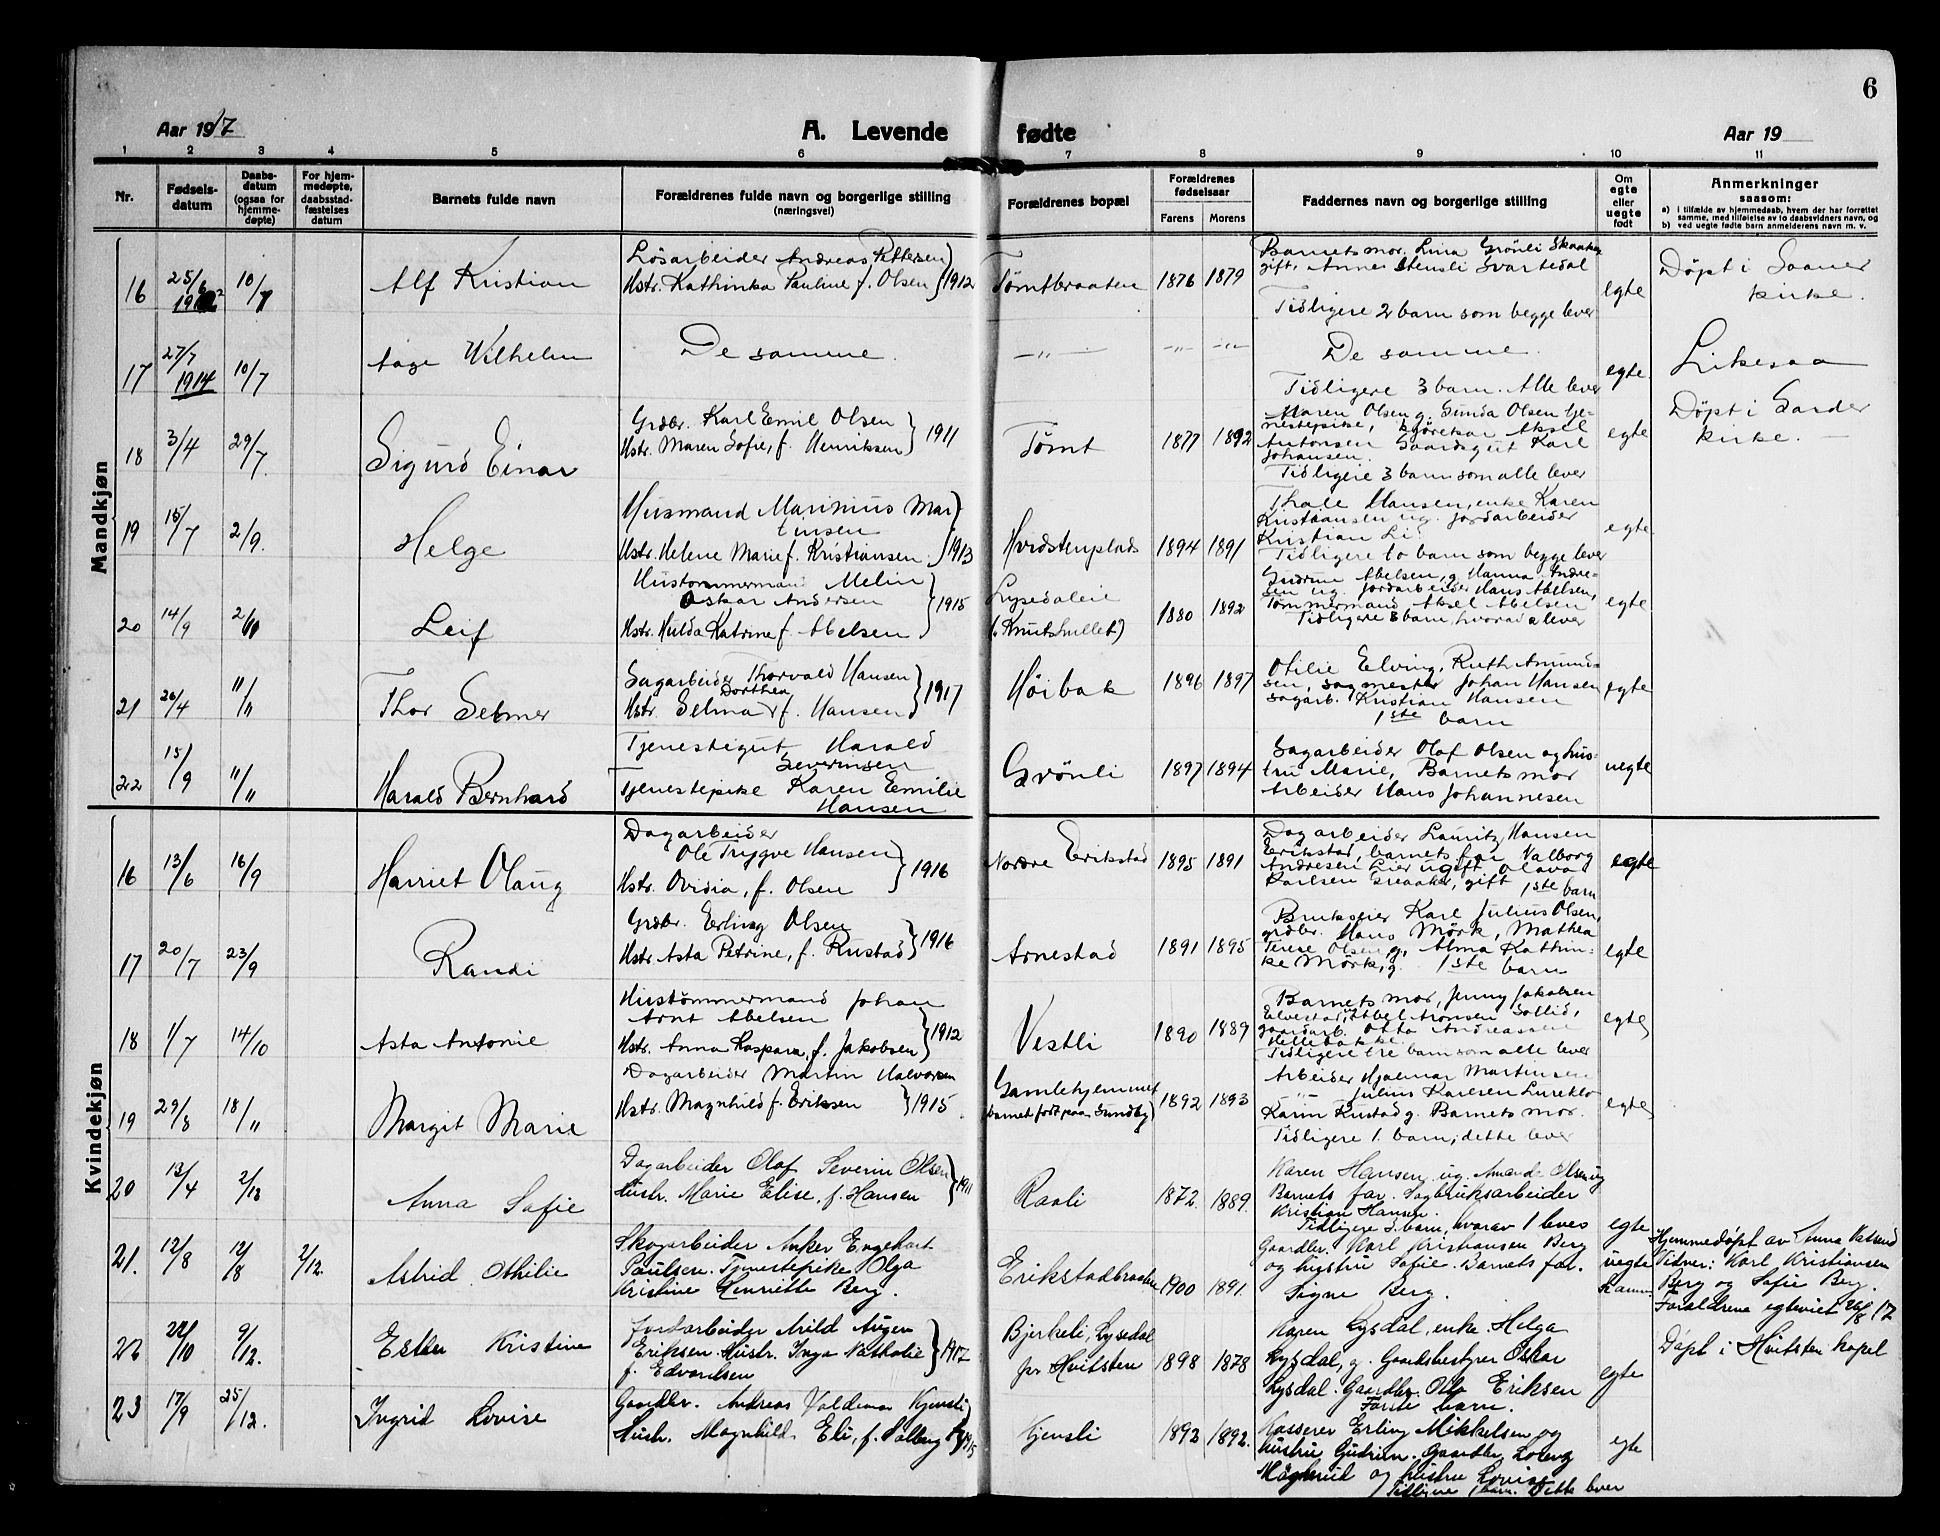 6
Aar 1917
A. Levende fødte
Aar 19
1 2 3 4 5 6 7 8 9 10 11
Nr.
Fødsels-
datum
Daabs-
datum
(ogsaa for
hjemme-
døpte)
For hjem-
medøpte,
daabsstad-
fæstelses
datum
Barnets fulde navn
Forældrenes fulde navn og borgerlige stilling
(næringsvei)
Forældrenes bopæl
Forældrenes
fødselsaar
Farens Morens
Faddernes navn og borgerlige stilling
Om
egte
eller
uegte
født
Anmerkninger
saasom:
a) i tilfælde av hjemmedaab, hvem der har forrettet
samme, med tilføielse av to daabsvidners navn, og
b) ved uegte fødte barn anmelderens navn m. v.
Mandkjøn
16 25/6 1912 10/7 Alf Kristian
Løsarbeider Andreas Pettersen
Hstr. Kathinka Pauline f. Olsen } 1912
Tømtbraaten 1876 1879
Barnets mor, Lina Grönli Skaaker
gift, Anne Stensli Svartedal
Tidligere 2 barn som begge lever
egte
Døpt i Saaner
kirke.
17 27/7 1914 10/7 Aage Wilhelm
De samme.
—„— —„— —„—
De samme.
Tidligere 3 barn. Alle lever
egte
Likesaa
18 3/4 29/7 Sigurd Einar
Grdbr. Karl Emil Olsen
Hstr. Maren Sofie, f. Henriksen } 1911
Tømt 1877 1892
Maren Olsen g. Gunda Olsen tje-
nestepike, kjørekar Aksel
Antonsen Gaardsgut Karl
Johansen.
Tidligere 3 barn som alle lever
egte
Døpt i Garder
kirke. —
19 15/7 2/9. Helge
Husmand Marinius Mar
tinsen
Hstr. Helene Marie f. Kristiansen. } 1913
Hvidstenplads 1894 1891
Thale Hansen, enke Karen
Kristiansen ug. jordarbeider
Kristian Li
Tidligere to barn som begge lever
egte
20 14/9 Leif
Hustømmermand Melin
Oskar Andersen
Hstr. Hulda Katrine f. Abelsen } 1915
Lysedaleie
(Knutshullet) 1880 1892
Gudrun Abelsen, g. Hanna Andre-
sen ug. jordarbeider Hans Abelsen,
Tømmermand Aksel Abelsen
Tidligere 3 barn, hvorav 2 lever
egte
21 26/4 11/„ Thor Selmer
Sagarbeider Thorvald Hansen
Dorthea
Hstr. Selma f. Hansen } 1917
Høibak 1896 1897
Otilie Elving, Ruth Amund-
sen, sagmester Johan Hansen
sagarb. Kristian Hansen
1ste barn
egte
22 15/9 11/„ Harald Bernhard
Tjenestegut Harald
Severinsen
Tjenestepike Karen Emilie
Hansen
Grönli 1897 1894
Sagarbeider Olaf Olsen og hus-
tru Marie, Barnets mor
Arbeider Hans Johannesen
uegte
Kvindekjøn
16 13/6 16/9 Harriet Olaug
Dagarbeider
Ole Trygve Hansen
Hstr. Ovidia, f. Olsen } 1916
Nordre Erikstad 1895 1891
Dagarbeider Lauritz Hansen
Erikstad, barnets far Valborg
Andresen Lier ugift Olava
Karlsen Greaaker, gift 1ste barn
egte
17 20/7 23/9 Randi
Grdbr. Erling Olsen
Hstr. Asta Petrine, f. Rustad } 1916
Arnestad 1891 1895
Brukseier Karl Julius Olsen,
grdbr. Hans Mörk, Mathea
Terese Olsen g, Alma Kathin-
ke Mörk, g. 1ste barn
egte
18 1/7 14/10 Asta Antonie
Hustømmermand Johan
Arnt Abelsen
Hstr. Anna Kaspara, f. Jakobsen } 1912
Vestli 1890 1889
Barnets mor, Jenny Jakobsen
Elvestad, Abel Aronsen Sollid,
gaardarb. Otto Andreassen
Hellebakke.
Tidligere tre barn som alle lever
egte
19 29/8 18/„ Margit Marie
Dagarbeider Martin Halvorsen
Hstr. Magnhild f. Eriksen } 1915
Gamlehjemmet
(barnet født paa Sundby) 1892 1893
Arbeider Hjalmar Martinsen
—„— Julius Karlsen
Karin Rustad g. Barnets mor.
Tidligere 1. barn, dette lever
egte
20 13/4 Anna Sofie
Dagarbeider Olaf Severin Olsen
Hustr. Marie Elise, f. Hansen } 1911
Raali 1872. 1889.
Karen Hansen, ug. Amanda Olsen ug
Barnets far. Sagbruksarbeider
Kristian Hansen.
Tidligere 3. barn, hvorav 1 leves
egte
21. 12/8 12/8 2/12. Astrid Othilie
Skogarbeider Anker Engehart
Paulsen. Tjenestepike Olga
Kristine Henriette Berg.
Erikstadbraaten 1900 1891.
Gaardbr. Karl Kristiansen Berg
og hustru Sofie. Barnets far.
Signe Berg.
uegte
Hjemmedøpt av Anna
Vidner: Karl Kristiansen
Berg og Sofie Berg.
Forældrene egteviet 26/8 17
22 22/10 9/12. Ester Kristine
Jordarbeider Arild Augen
Eriksen. Hustr. Inga Nathalie
f. Edvardsen } 1917
Bjerkeli, Lysedal
pr Hvitsten 1898 1878
Karen Lysdal, enke. Helga
Lysdal, g. Gaardsbestyrer Oskar
Lysdal. Gaardbr. Otto Eriksen
Første barn.
egte
Døpt i Hvitsten kapel
23 17/9 25/12. Ingrid Lovise
Gaardbr. Andreas Valdemar Kjensli
Hustr. Magnhild Eli, f. Solberg } 1915
Kjensli 1892 1892.
Kasserer Erling Mikkelsen og
hustru Gudrun. Gaardbr.
og hustru Lovise
Tidligere 1 barn. Dette lever
egte